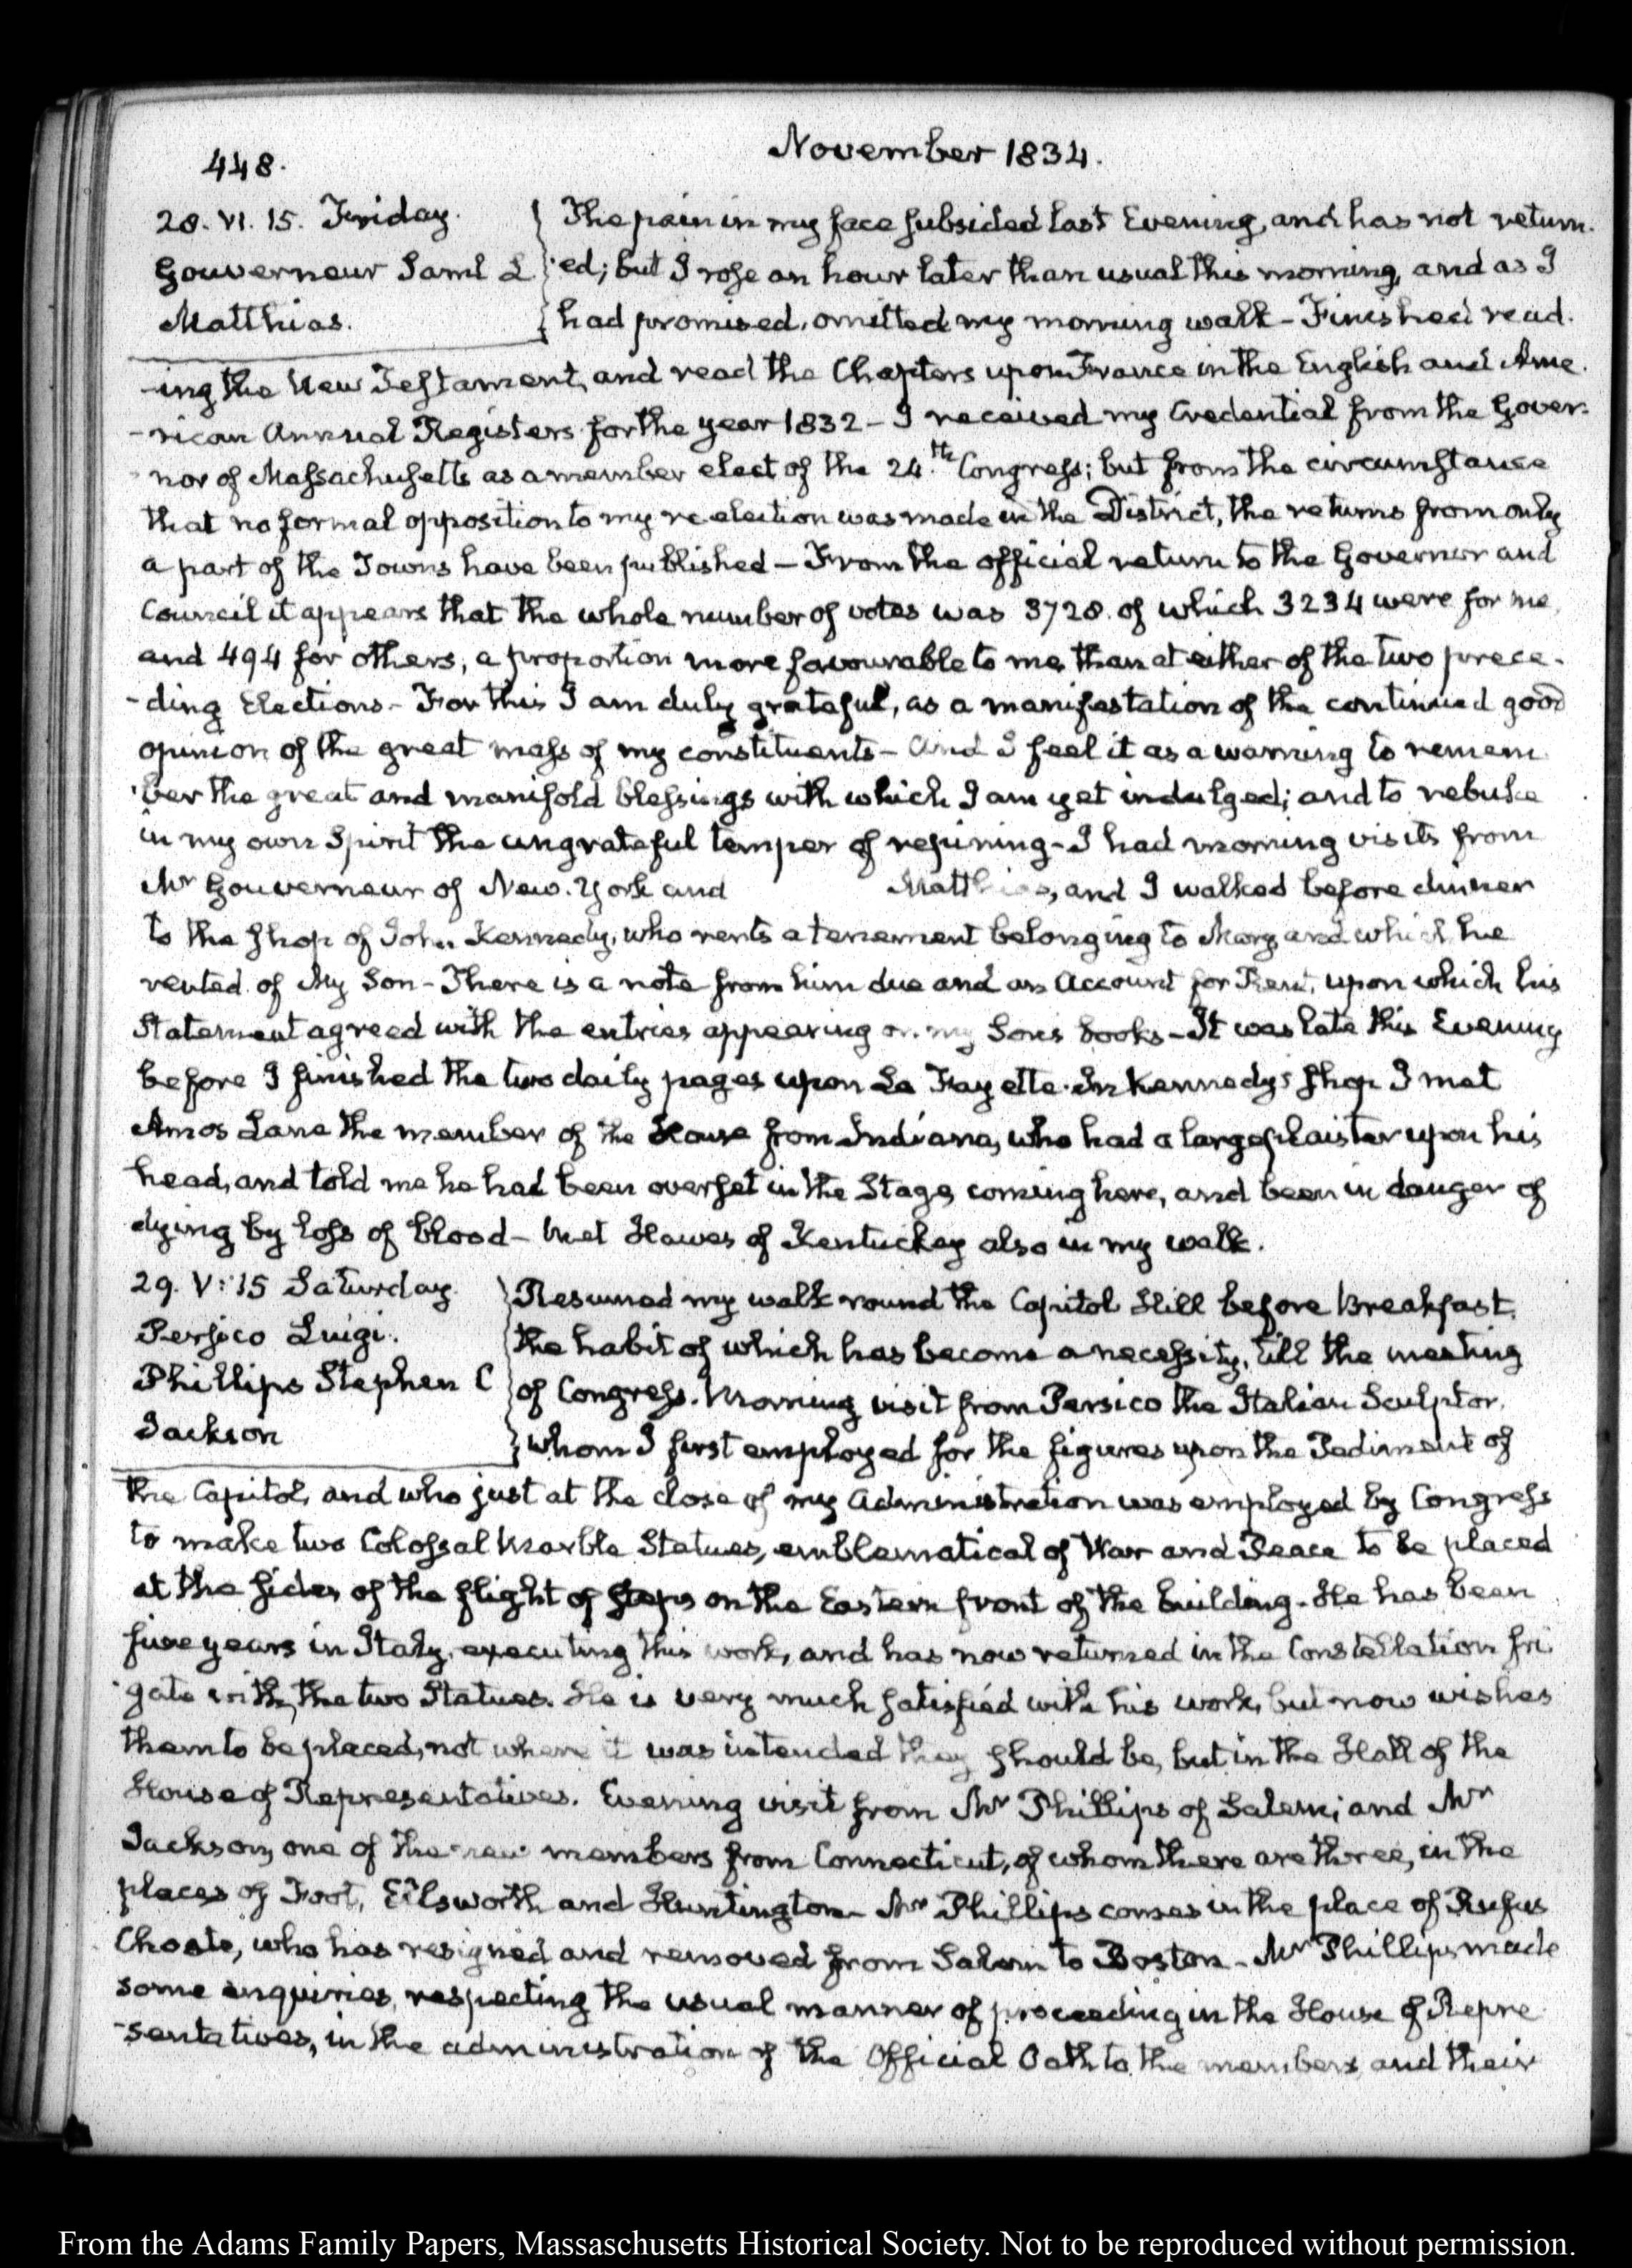 448.
November 1834.
28. VI. 15. Friday.
Gouverneur Saml L
Matthias.
The pain in my face subsided last Evening, and has not return-
ed; but I rose an hour later than usual this morning, and as I
had promised, omitted my morning walk - Finished read-
-ing the New Testament, and read the Chapters upon France in the English and Ame-
-rican Annual Registers for the year 1832 - I received my Credential from the Gover-
-nor of Massachusetts as a member elect of the 24.th Congress; but from the circumstance
that no formal opposition to my re-election was made in the District, the returns from only
a part of the Towns have been published - From the official return to the Governor and
Council it appears that the whole number of votes was 3728. of which 3234 were for me,
and 494 for others; a proportion more favourable to me, than at either of the two prece-
-ding Elections - For this I am duly grateful, as a manifestation of the continued good
opinion of the great mass of my constituents - And I feel it as a warning to remem-
-ber the great and manifold blessings with which I am yet indulged; and to rebuke
in my own Spirit the ungrateful temper of repining - I had morning visits from
Mr Gouverneur of New-York and Matthias, and I walked before dinner
to the shop of John Kennedy, who rents a tenement belonging to Mary and which he
rented of My Son - There is a note from him due and an Account for Rent, upon which his
Statement agreed with the entries appearing on my Son's books - It was late this Evening
before I finished the two daily pages upon La Fayette. In Kennedy's shop I met
Amos Lane the member of the House from Indiana, who had a large plaister upon his
head, and told me he had been overset in the Stage, coming here, and been in danger of
dying by loss of blood - Met Hawes of Kentuckey also in my walk.
29. V: 15 Saturday.
Persico Luigi.
Phillips Stephen C
Jackson
Resumed my walk round the Capitol Hill before Breakfast,
the habit of which has become a necessity, till the meeting
of Congress. Morning visit from Persico the Italian Sculptor,
whom I first employed for the figures upon the Pediment of
the Capitol, and who just at the close of my Administration was employed by Congress
to make two Colossal Marble Statues, emblematical of War and Peace to be placed
at the sides of the flight of steps on the Eastern front of the building. He has been
five years in Italy, executing this work, and has now returned in the Constellation fri-
-gate with, the two Statues. He is very much satisfied with his work, but now wishes
them to be placed, not where it was intended they should be, but in the Hall of the
House of Representatives. Evening visit from Mr Phillips of Salem; and Mr
Jackson, one of the new members from Connecticut, of whom there are three, in the
places of Foot, Ellsworth and Huntington - Mr Phillips comes in the place of Rufus
Choate, who has resigned and removed from Salem to Boston - Mr Phillips made
some enquiries, respecting the usual manner of proceeding in the House of Repre-
-sentatives, in the administration of the Official Oath to the members, and their
From the Adams Family Papers, Massaschusetts Historical Society. Not to be reproduced without permission.